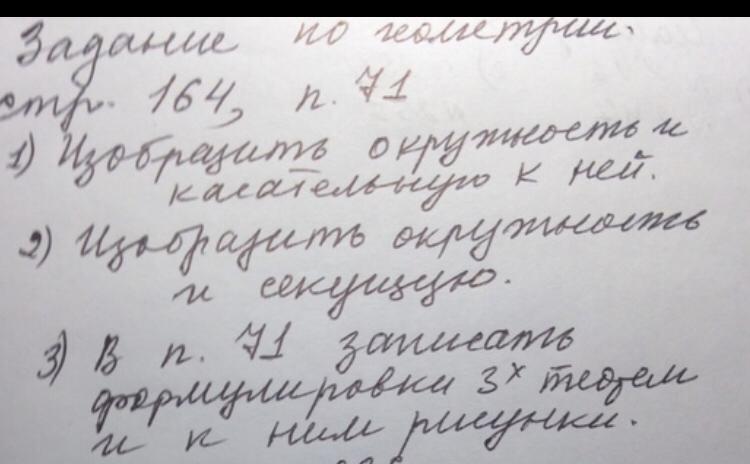 Задание по геометрии.
стр. 164, п. 71
1) Изобразить окружность и
касательную к ней.
2) Изобразить окружность
и секущую.
3) В п. 71 записать
формулировки 3х теорем
и к ним рисунки.